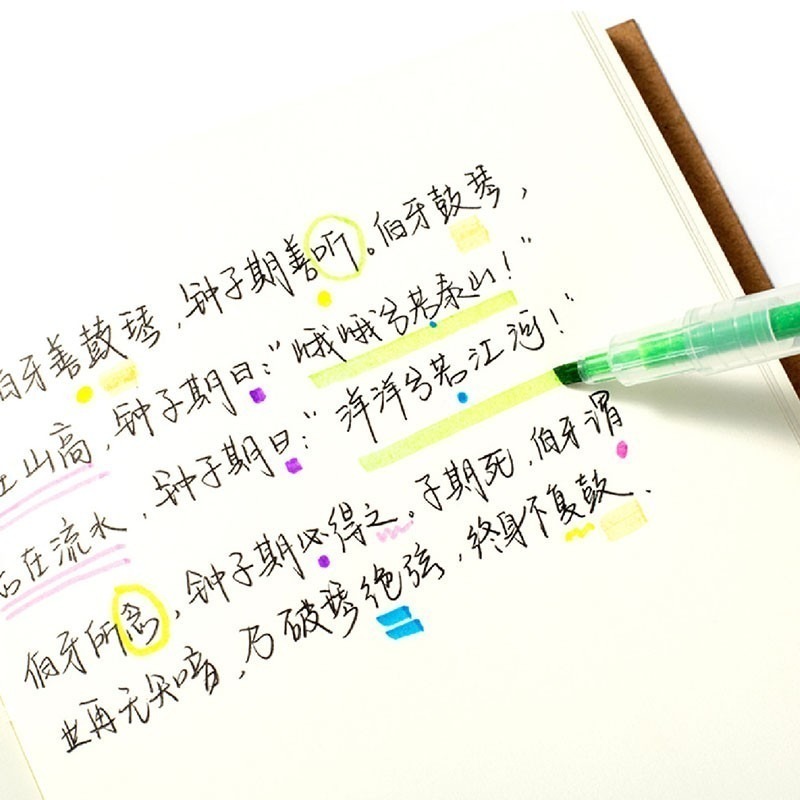 伯牙善鼓琴,钟子期善听。伯牙鼓琴,
在山高,钟子期曰:“峨峨兮若泰山!”
志在流水,钟子期曰:“洋洋兮若江河!”
伯牙所念,钟子期必得之。子期死,伯牙谓
世再无知音,乃破琴绝弦,终身不复鼓.